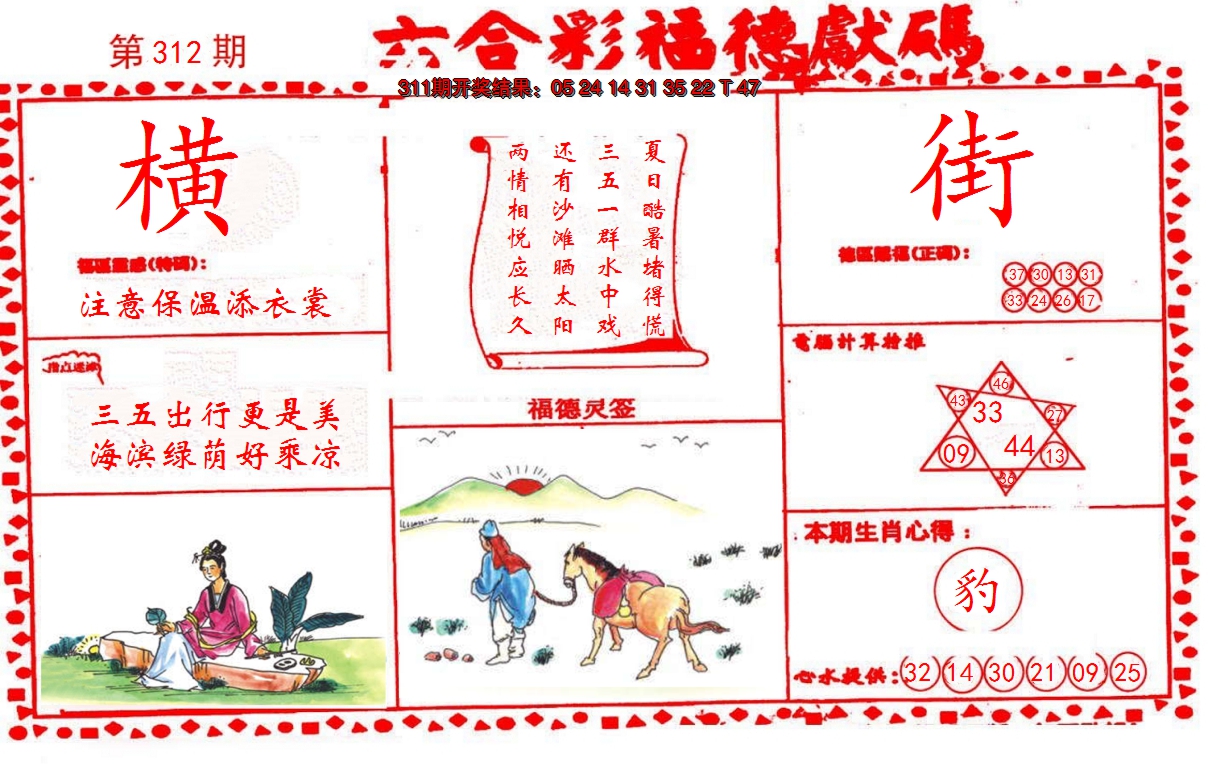 第312期
六合彩福德獻碼
311期开奖结果：05 24 14 31 35 22 T 47
横
福區靈感(特碼)：
注意保温添衣裳
指点迷津
三五出行更是美
海滨绿荫好乘凉
夏日酷暑堵得慌
三五一群水中戏
还有沙滩晒太阳
两情相悦应长久
福德灵签
街
德區賜福(正碼)：
37 30 13 31
33 24 26 17
電腦計算抢推
46
43 33 27
09 44 13
36
本期生肖心得：
豹
心水提供：32 14 30 21 09 25